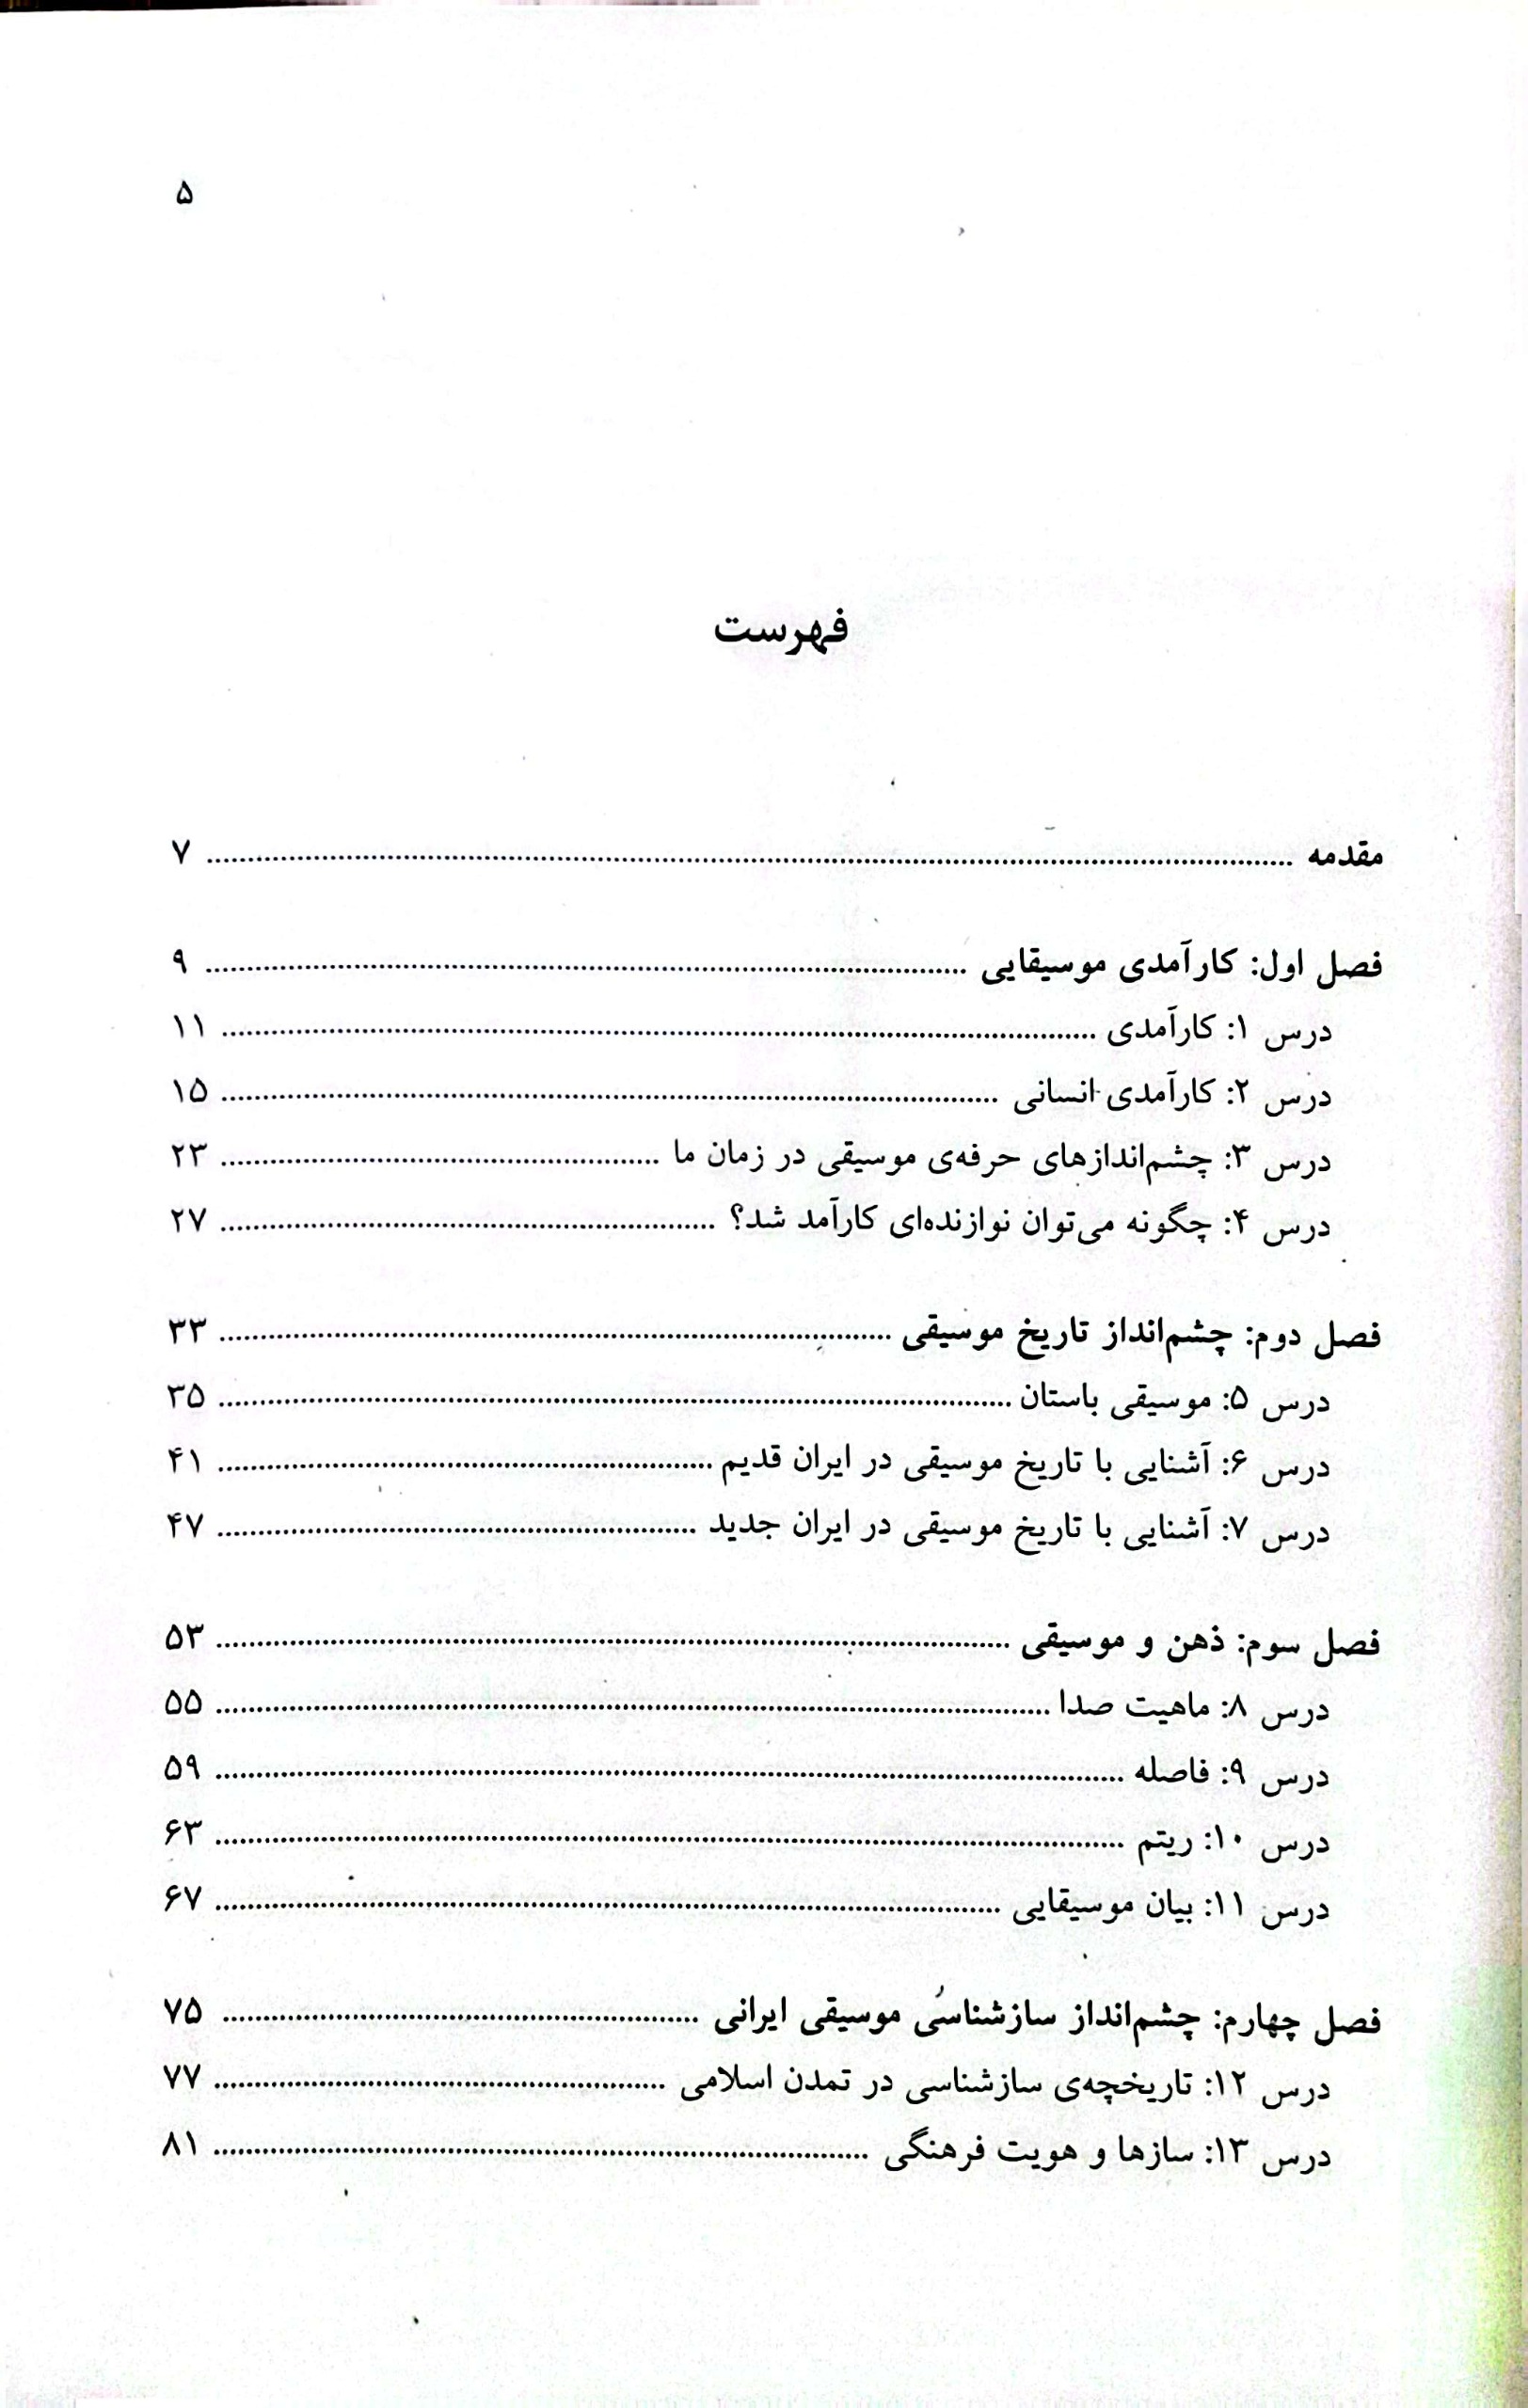 ۵
فهرست
مقدمه ........................................ ۷
فصل اول: کارآمدی موسیقایی ........................................ ۹
درس ۱: کارآمدی ........................................ ۱۱
درس ۲: کارآمدی انسانی ........................................ ۱۵
درس ۳: چشم‌اندازهای حرفه‌ی موسیقی در زمان ما ........................................ ۲۳
درس ۴: چگونه می‌توان نوازنده‌ای کارآمد شد؟ ........................................ ۲۷
فصل دوم: چشم‌انداز تاریخ موسیقی ........................................ ۳۳
درس ۵: موسیقی باستان ........................................ ۳۵
درس ۶: آشنایی با تاریخ موسیقی در ایران قدیم ........................................ ۴۱
درس ۷: آشنایی با تاریخ موسیقی در ایران جدید ........................................ ۴۷
فصل سوم: ذهن و موسیقی ........................................ ۵۳
درس ۸: ماهیت صدا ........................................ ۵۵
درس ۹: فاصله ........................................ ۵۹
درس ۱۰: ریتم ........................................ ۶۳
درس ۱۱: بیان موسیقایی ........................................ ۶۷
فصل چهارم: چشم‌انداز سازشناسی موسیقی ایرانی ........................................ ۷۵
درس ۱۲: تاریخچه‌ی سازشناسی در تمدن اسلامی ........................................ ۷۷
درس ۱۳: سازها و هویت فرهنگی ........................................ ۸۱